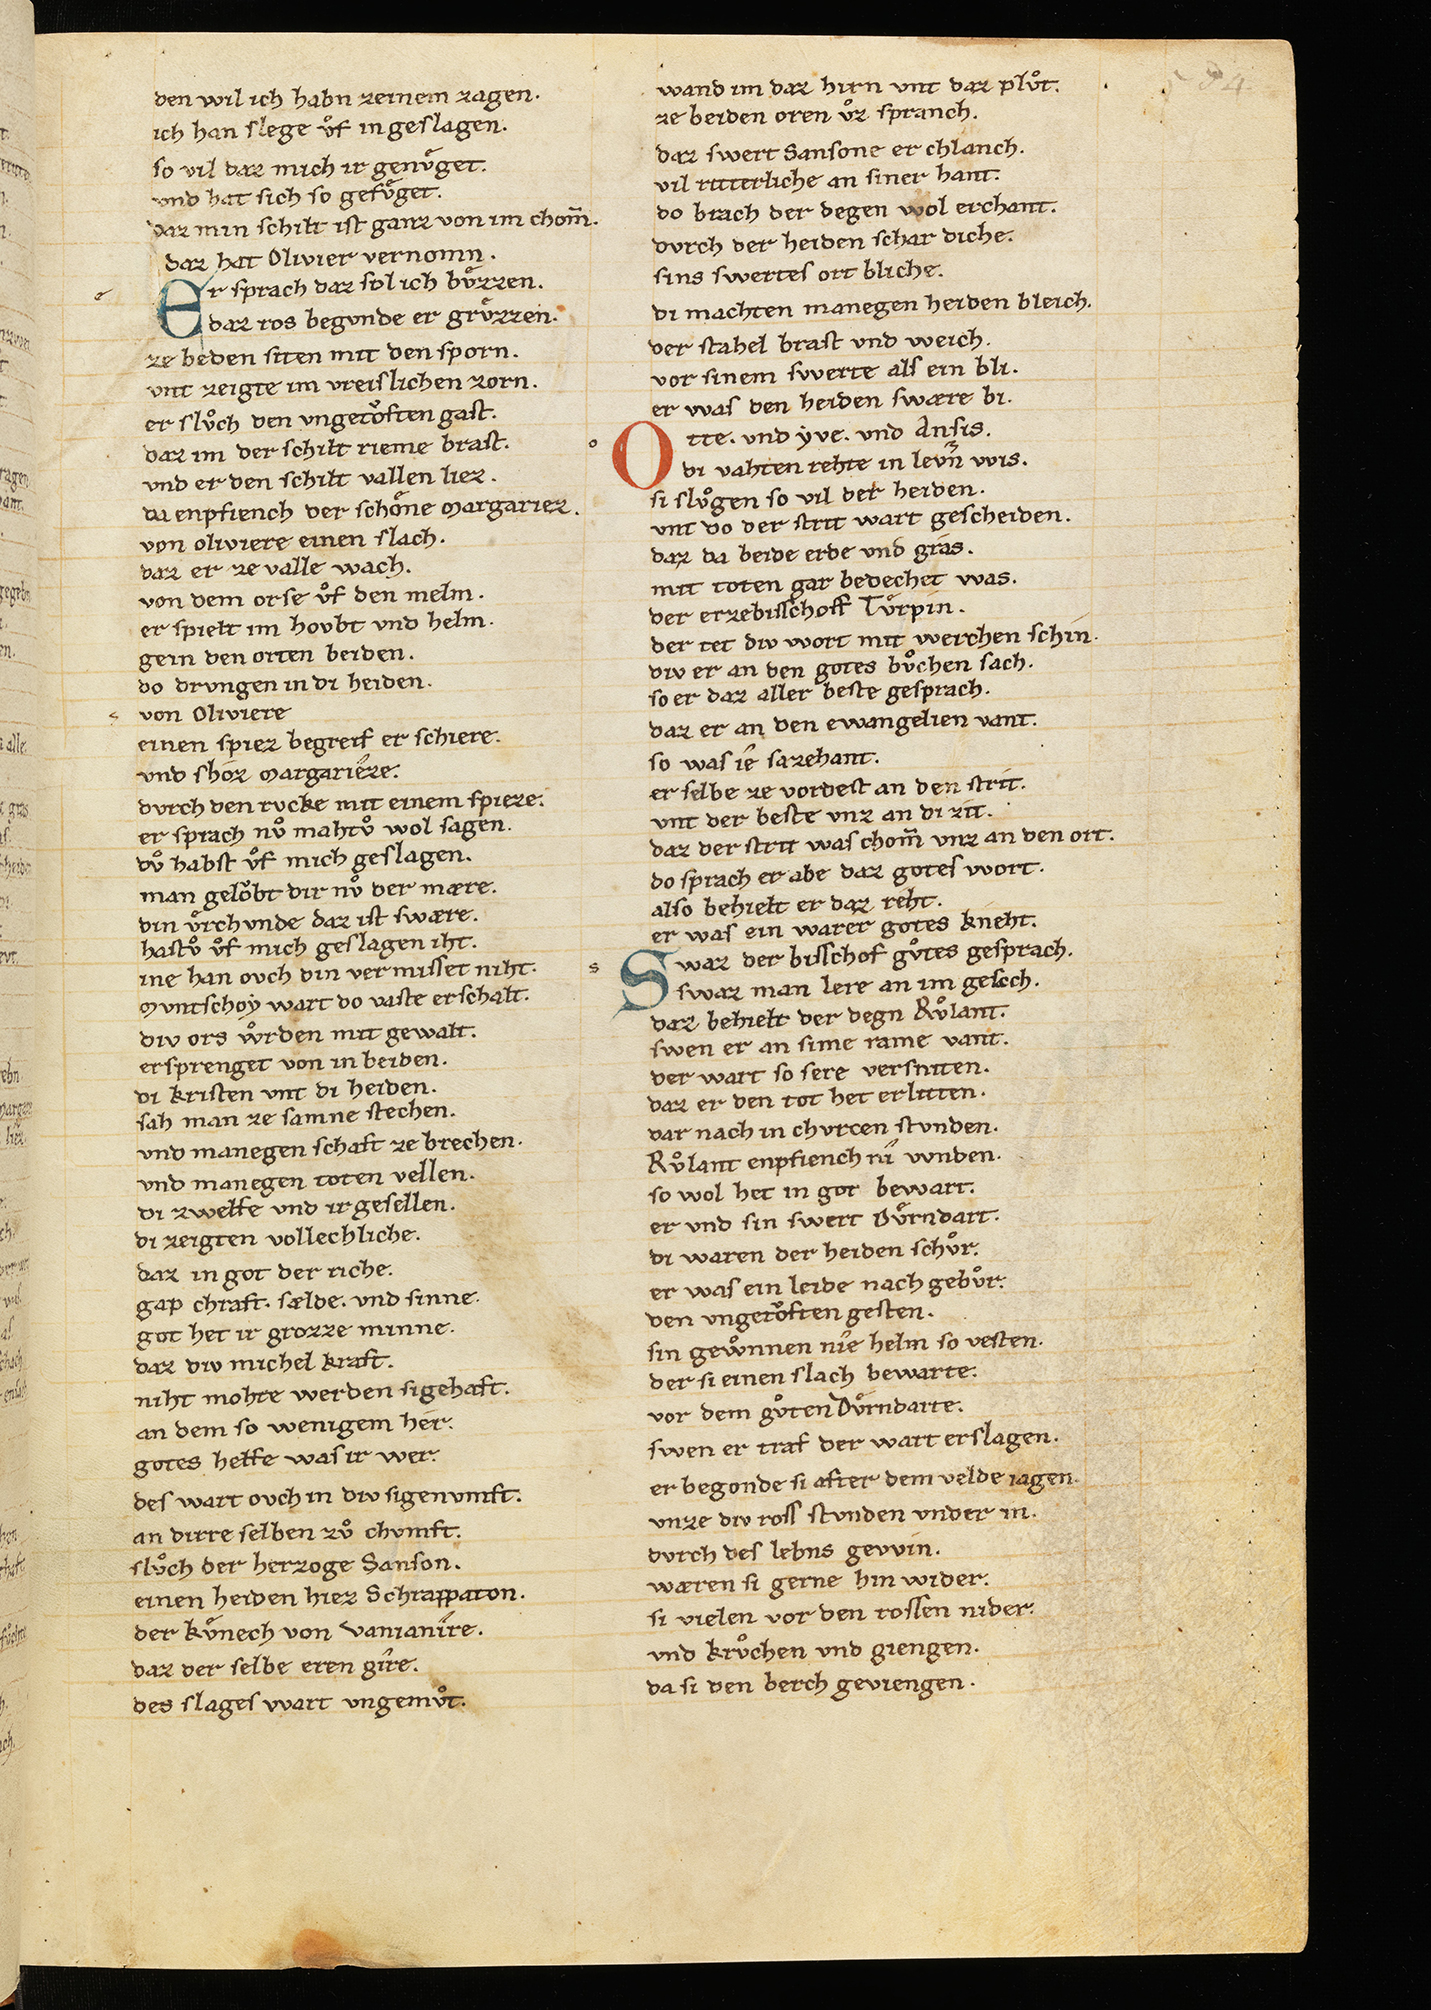 den wil ich habn zeinem zagen.
ich han slege uͦf in geslagen.
so vil daz mich ir genuͤget.
vnd hat sich so gefuͤget.
daz min schilt ist ganz von im chom̅.
daz hat Olivier vernomn.
Er sprach daz sol ich buͤzzen.
daz ros begvnde er gruͤzzen.
ze beden siten mit den sporn.
vnt zeigte im vreislichen zorn.
er sluͦch den vngetoͮften gast.
daz im der schilt rieme brast.
vnd er den schilt vallen liez.
da enpfiench der schoͤne Margariez.
von oliviere einen slach.
daz er ze valle wach.
von dem orse uͦf den melm.
er spielt im hovbt vnd helm.
gein den orten beiden.
do drvngen in di heiden.
von Oliviere
einen spiez begreif er schiere.
vnd shoz Margarieze.
dvrch den rvcke mit einem spieze.
er sprach nuͦ mahtuͦ wol sagen.
duͦ habst uͦf mich geslagen.
man geloͮbt dir nuͦ der mære.
din uͤrchvnde daz ist swære.
hastuͦ uͦf mich geslagen iht.
ine han ovch din vermisset niht.
Mvntschoy wart do vaste erschalt.
div ors wͦrden mit gewalt.
ersprenget von in beiden.
di kristen vnt di heiden.
sah man ze samne stechen.
vnd manegen schaft zebrechen.
vnd manegen toten vellen.
di zwelfe vnd ir gesellen.
di zeigten vollechliche.
daz in got der riche.
gap chraft. sælde. vnd sinne.
got het ir grozze minne.
daz div michel kraft.
niht mohte werden sigehaft.
an dem so wenigem her.
gotes helfe was ir wer.
des wart ovch in div sigenvmft.
an dirre selben zuͦ chvmft.
sluͦch der herzoge Sanson.
einen heiden hiez Schrappaton.
der kuͤnech von Vanianire.
daz der selbe eren gire.
des slages wart vngemuͦt.
wand im daz hirn vnt daz pluͦt.
ze beiden oren uͦz spranch.
daz swert Sansone er chlanch.
vil ritterliche an siner hant.
do brach der degen wol erchant.
dvrch der heiden schar diche.
sins swertes ort bliche.
di machten manegen heiden bleich.
der stahel brast vnd weich.
vor sinem swerte als ein bli.
er was den heiden swære bi.
Otte. vnd yve. vnd Ansis.
di vahten rehte in levn̅ wis.
si sluͦgen so vil der heiden.
vnt do der strit wart gescheiden.
daz da beide erde vnd gras.
mit toten gar bedechet was.
der erzebisschoff Tuͤrpin.
der tet div wort mit werchen schin.
div er an den gotes buͦchen sach.
so er daz aller beste gesprach.
daz er an den ewangelien vant.
so was ie sazehant.
er selbe ze vordest an den strit.
vnt der beste vnz an di zit.
daz der strit was chom̅ vnz an den ort.
do sprach er abe daz gotes wort.
also behielt er daz reht.
er was ein warer gotes kneht.
Swaz der bisschof guͦtes gesprach.
swaz man lere an im gesech.
daz behielt der degn Ruͦlant.
swen er an sime rame vant.
der wart so sere versniten.
daz er den tot het erlitten.
dar nach in chvrcen stvnden.
Ruͦlant enpfiench nii wnden.
so wol het in got bewart.
er vnd sin swert Duͤrndart.
di waren der heiden schuͦr.
er was ein leide nach gebuͦr.
den vngetoͮften gesten.
sin gewͦnnen nie helm so vesten.
der si einen slach bewarte.
vor dem guͦten Duͤrndarte.
swen er traf der wart erslagen.
er begonde si after dem velde iagen.
vnze div ross stvnden vnder in.
dvrch des lebns gewin.
wæren si gerne hin wider.
si vielen vor den rossen nider.
vnd kruͦchen vnd giengen.
da si den berch geviengen.